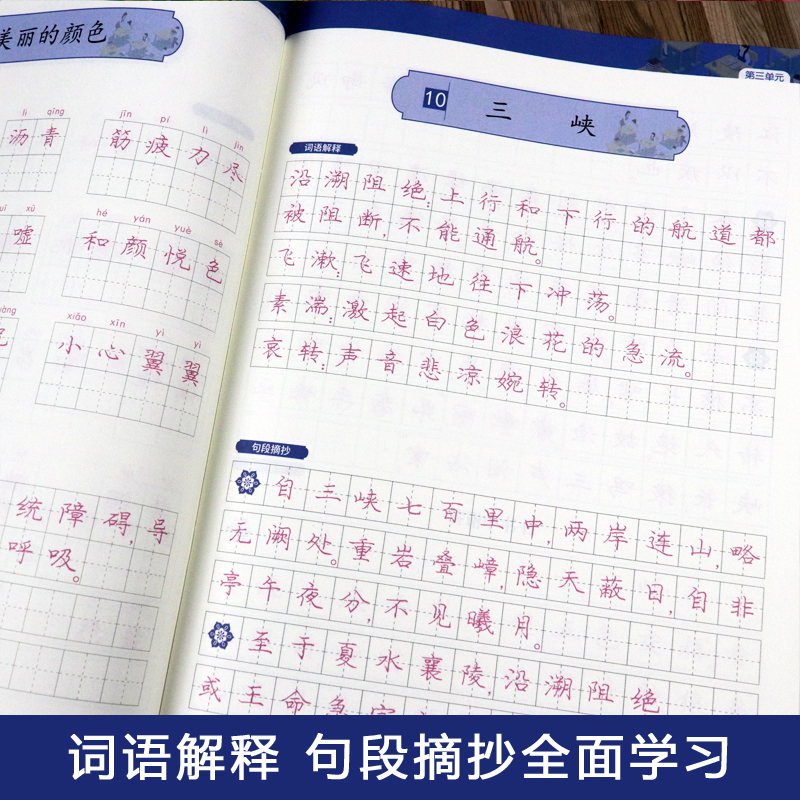 美丽的颜色
lì qīng
沥青
jīn pí lì jìn
筋疲力尽
xū
嘘
hé yán yuè sè
和颜悦色
xiǎo xīn yì yì
小心翼翼
统障碍,导
呼吸。
第三单元
10 三峡
词语解释
沿溯阻绝:上行和下行的航道都
被阻断,不能通航。
飞漱:飞速地往下冲荡。
素湍:激起白色浪花的急流。
哀转:声音悲凉婉转。
句段摘抄
自三峡七百里中,两岸连山,略
无阙处。重岩叠嶂,隐天蔽日,自非
亭午夜分,不见曦月。
至于夏水襄陵,沿溯阻绝
或王命急宣
词语解释 句段摘抄全面学习